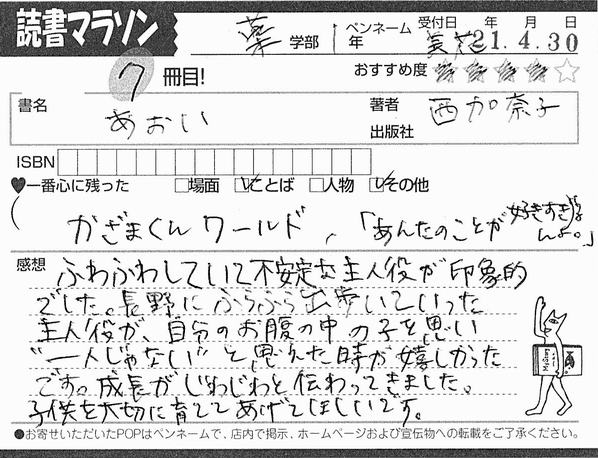 読書マラソン
薬 学部 1年 ペンネーム 美花 受付日 年 月 日 21.4.30
おすすめ度 ★★★★☆
7 冊目!
書名 あおい 著者 西加奈子
出版社
ISBN
♥一番心に残った □場面 ☑ことば □人物 ☑その他
かざまくんワールド、「あんたのことが好きすぎるんよ。」
感想 ふわふわしていて不安定な主人役が印象的
でした。長野にふらふら出歩いていった
主人役が、自分のお腹の中の子を思い
"一人じゃない"と思えた時が嬉しかった
です。成長がじわじわと伝わってきました。
子供を大切に育ててあげてほしいです。
●お寄せいただいたPOPはペンネームで、店内で掲示、ホームページおよび宣伝物への転載をご了承ください。